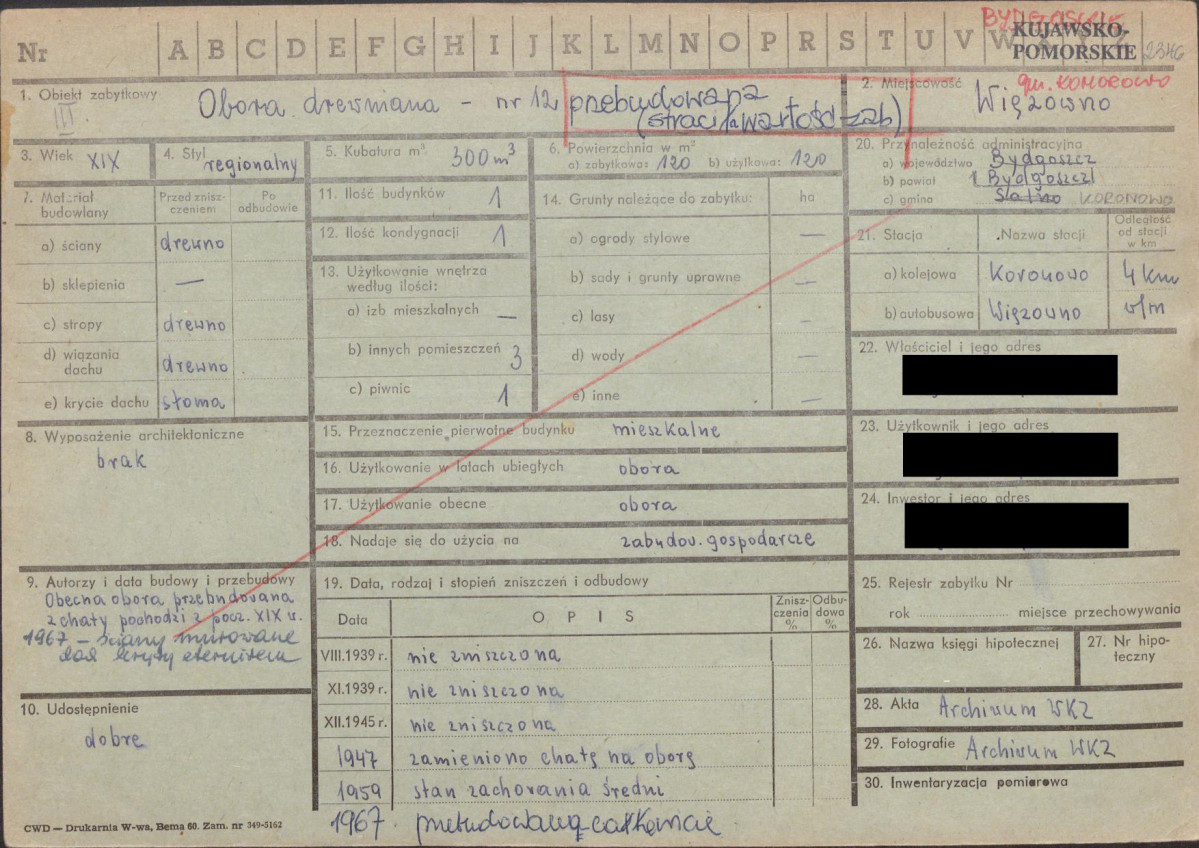 Nr A B C D E F G H I J K L M N O P R S T U V W
BYDGOSKIE
KUJAWSKO-
POMORSKIE 2346
1. Obiekt zabytkowy
III
Obora drewniana - nr 12 przebudowana
(straciła wartość zab)
2. Miejscowość
gm. KORONOWO
Więzowno
3. Wiek XIX
4. Styl regionalny
5. Kubatura m³ 300 m³
6. Powierzchnia w m²
a) zabytkowa: 120 b) użytkowa: 120
7. Materiał budowlany
Przed zniszczeniem
Po odbudowie
a) ściany drewno
b) sklepienia —
c) stropy drewno
d) wiązania dachu drewno
e) krycie dachu słoma
8. Wyposażenie architektoniczne
brak
9. Autorzy i data budowy i przebudowy
Obecna obora przebudowana
z chaty pochodzi z pocz. XIX w.
1967 - ściany murowane
dach kryty eternitem
10. Udostępnienie
dobre
11. Ilość budynków 1
12. Ilość kondygnacji 1
13. Użytkowanie wnętrza
według ilości:
a) izb mieszkalnych —
b) innych pomieszczeń 3
c) piwnic 1
14. Grunty należące do zabytku: ha
a) ogrody stylowe —
b) sady i grunty uprawne —
c) lasy —
d) wody —
e) inne —
15. Przeznaczenie pierwotne budynku mieszkalne
16. Użytkowanie w latach ubiegłych obora
17. Użytkowanie obecne obora
18. Nadaje się do użycia na zabudow. gospodarcze
19. Data, rodzaj i stopień zniszczeń i odbudowy
Data OPIS Zniszczenia % Odbudowa %
VIII.1939 r. nie zniszczona
XI.1939 r. nie zniszczona
XII.1945 r. nie zniszczona
1947 zamieniono chatę na oborę
1959 stan zachowania średni
1967. przebudowana całkowicie
20. Przynależność administracyjna
a) województwo Bydgoszcz
b) powiat Bydgoszcz
c) gmina KORONOWO
21. Stacja Nazwa stacji Odległość od stacji w km
a) kolejowa Koronowo 4 km
b) autobusowa Więzowno v/m
22. Właściciel i jego adres
23. Użytkownik i jego adres
24. Inwestor i jego adres
25. Rejestr zabytku Nr
rok miejsce przechowywania
26. Nazwa księgi hipotecznej
27. Nr hipoteczny
28. Akta Archiwum WKZ
29. Fotografie Archiwum WKZ
30. Inwentaryzacja pomiarowa
CWD — Drukarnia W-wa, Bema 60. Zam. nr 349-5162